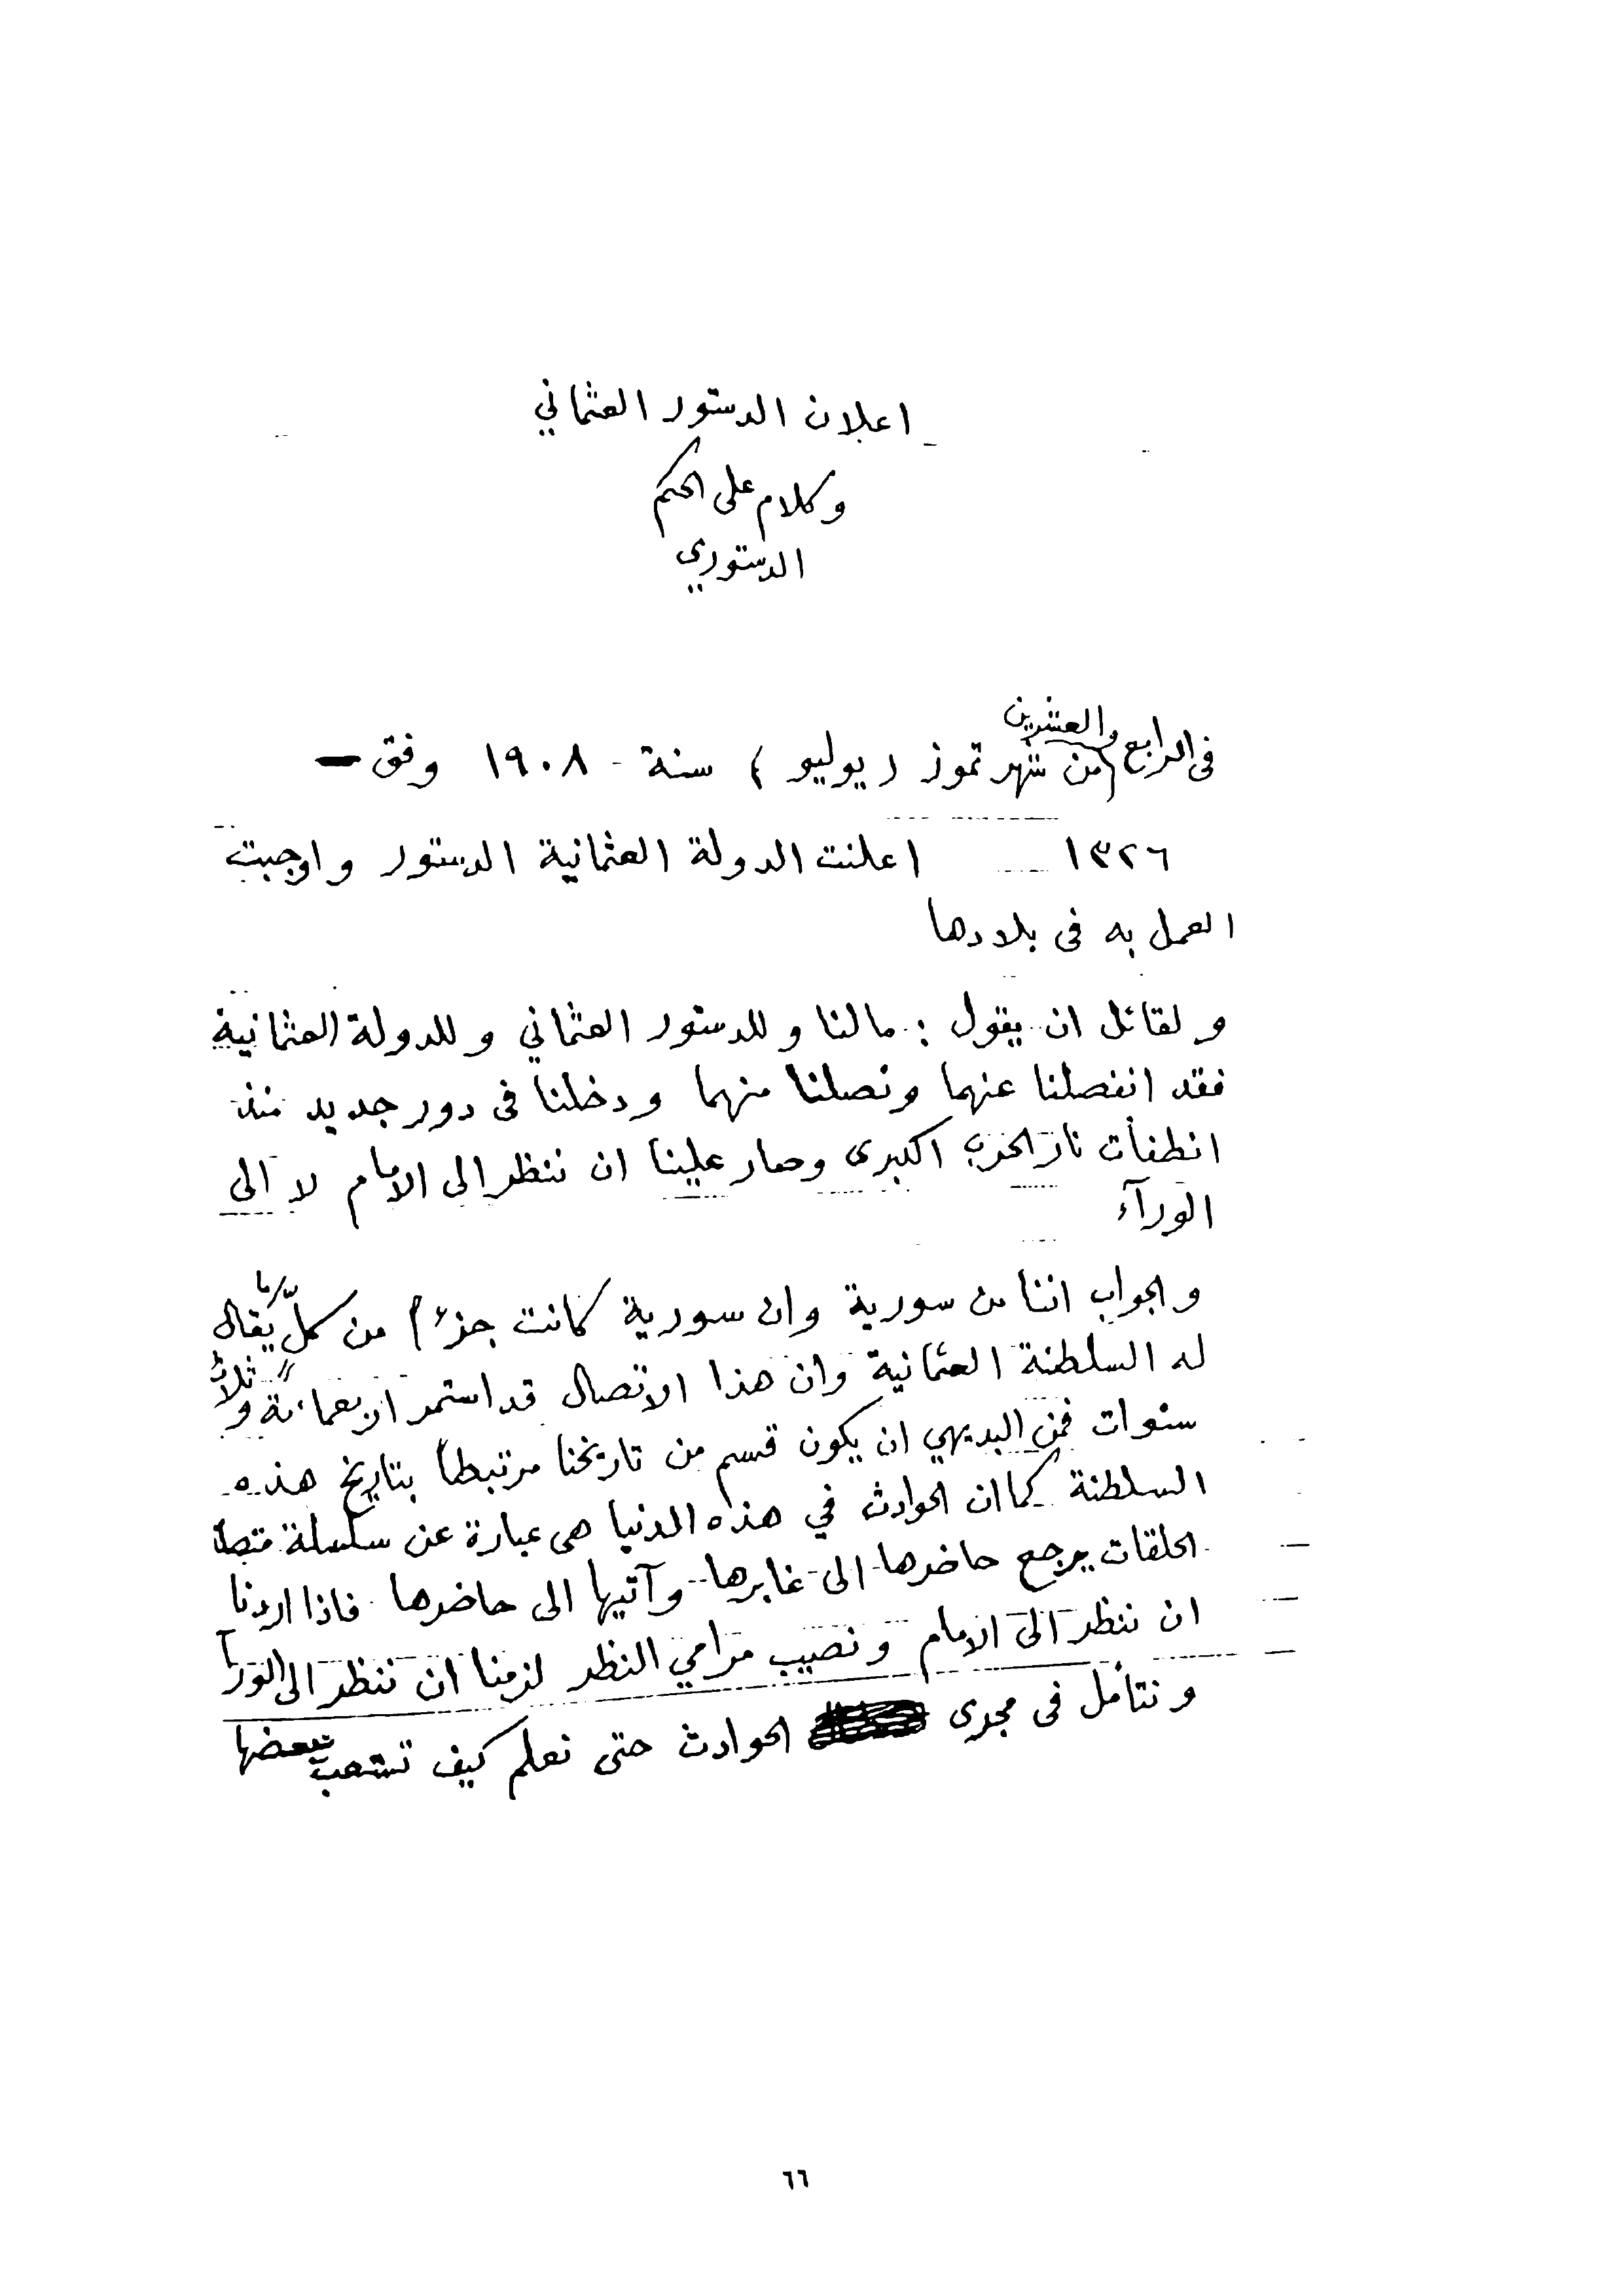 اعلان الدستور العثماني
وكلام على الحكم
الدستوري
فى الرابع والعشرين من شهر تموز (يوليو) سنة ١٩٠٨ وفق —
١٣٢٦ اعلنت الدولة العثمانية الدستور واوجبت
العمل به فى بلادها
ولقائل ان يقول : مالنا وللدستور العثماني وللدولة العثمانية
فقد انفصلنا عنهما ونصلنا منهما ودخلنا فى دور جديد منذ
انطفأت نار الحرب الكبرى وصار علينا ان ننظر الى الامام لا الى
الورآء
والجواب اننا من سورية وان سورية كانت جزءا من كلّ ما يقال
له السلطنة العثمانية وان هذا الاتصال قد استمر اربعمائة وثلاث
سنوات فمن البديهي ان يكون قسم من تاريخنا مرتبطاً بتاريخ هذه
السلطنة كما ان الحوادث في هذه الدنيا هى عبارة عن سلسلة متصلة
الحلقات يرجع حاضرها الى غابرها وآتيها الى حاضرها فاذا اردنا
ان ننظر الى الامام ونصيب مرامي النظر لزمنا ان ننظر الى الورآ
ونتأمل فى مجرى الحوادث حتى نعلم كيف تشعب بعضها
٦٦